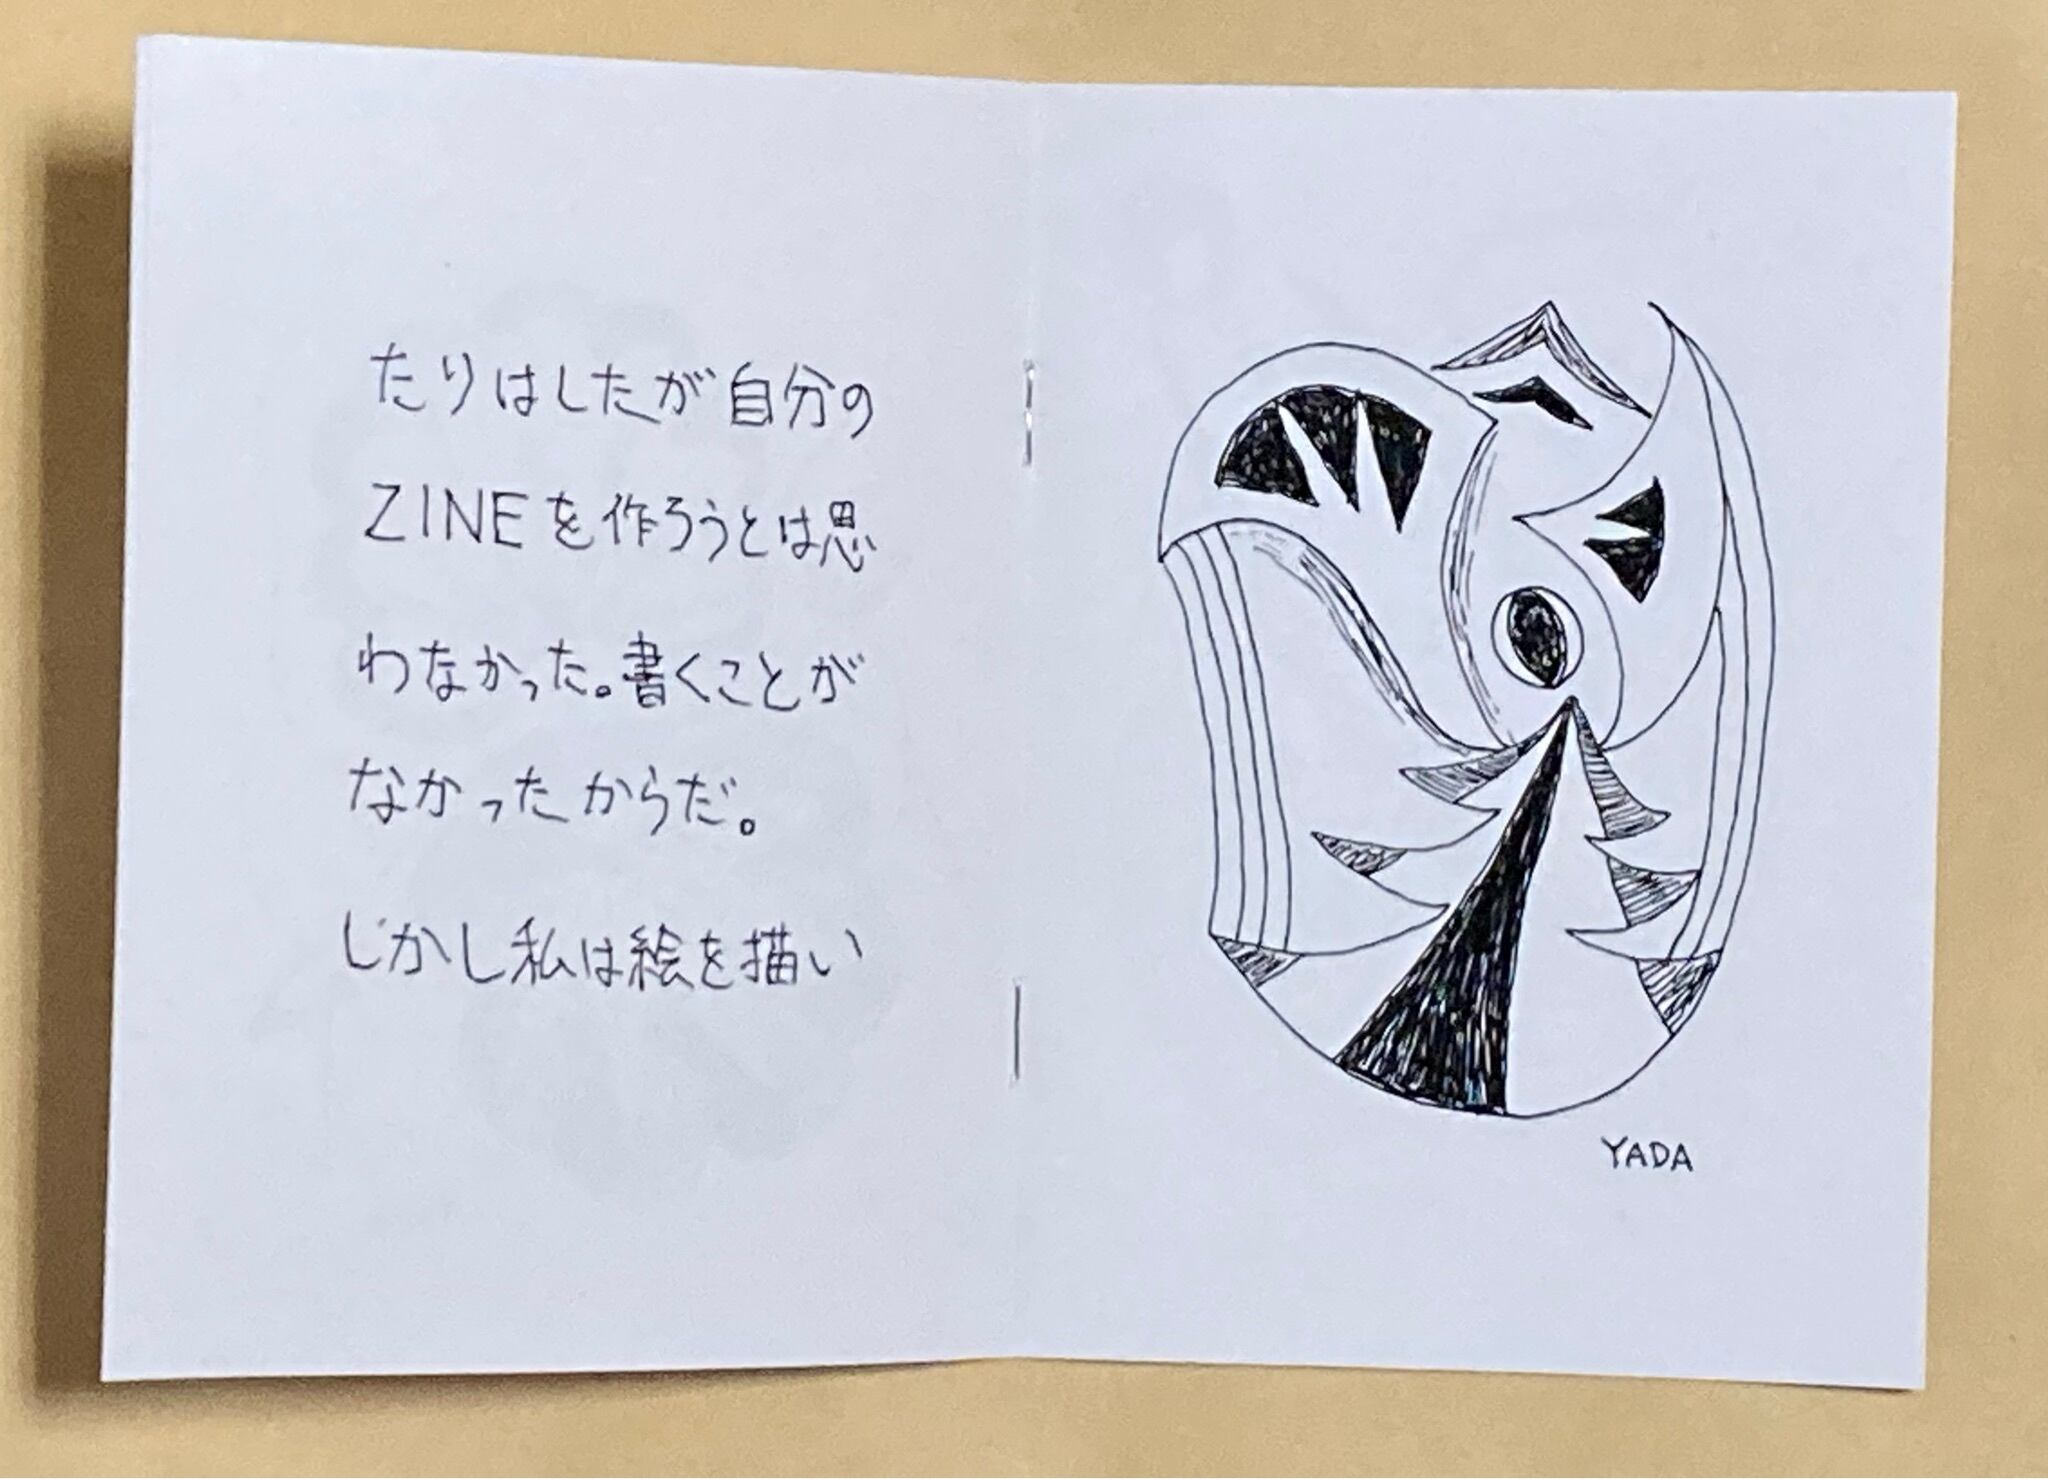 たりはしたが自分の
ZINEを作ろうとは思
わなかった。書くことが
なかったからだ。
しかし私は絵を描い
YADA